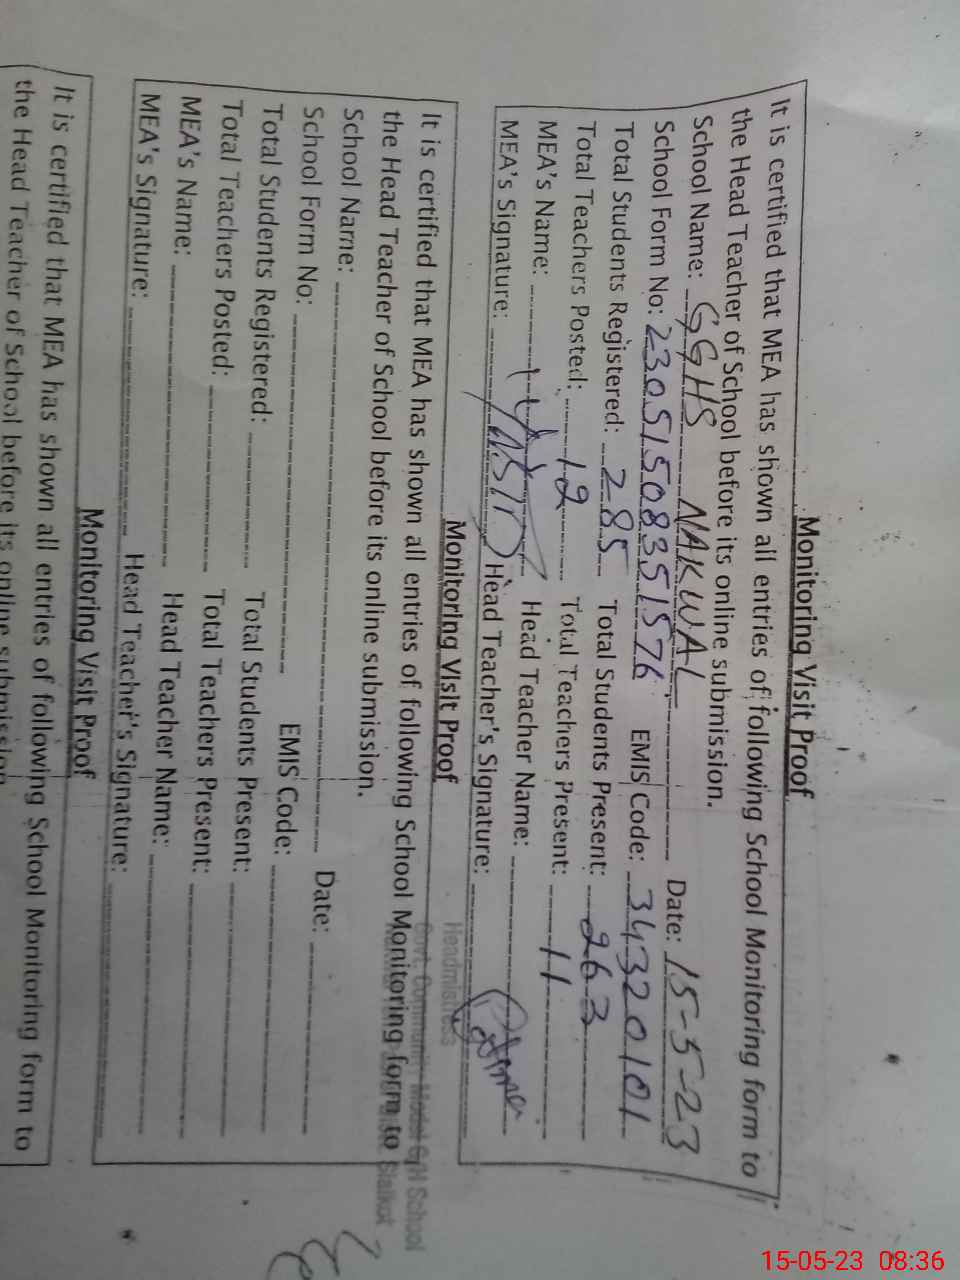 Monitoring Visit Proof
It is certified that MEA has shown all entries of following School Monitoring form to
the Head Teacher of School before its online submission.
School Name: GGHS NAKWAL Date: 15-5-23
School Form No: 23051508351576 EMIS Code: 34320101
Total Students Registered: 285 Total Students Present: 263
Total Teachers Posted: 12 Total Teachers Present: 11
MEA's Name: Head Teacher Name:
MEA's Signature: Head Teacher's Signature:
Headmistress
Govt. Community Model G/H School
Sialkot
Monitoring Visit Proof
It is certified that MEA has shown all entries of following School Monitoring form to
the Head Teacher of School before its online submission.
School Name: Date:
School Form No: EMIS Code:
Total Students Registered: Total Students Present:
Total Teachers Posted: Total Teachers Present:
MEA's Name: Head Teacher Name:
MEA's Signature: Head Teacher's Signature:
Monitoring Visit Proof
It is certified that MEA has shown all entries of following School Monitoring form to
the Head Teacher of School before its online submission
15-05-23 08:36